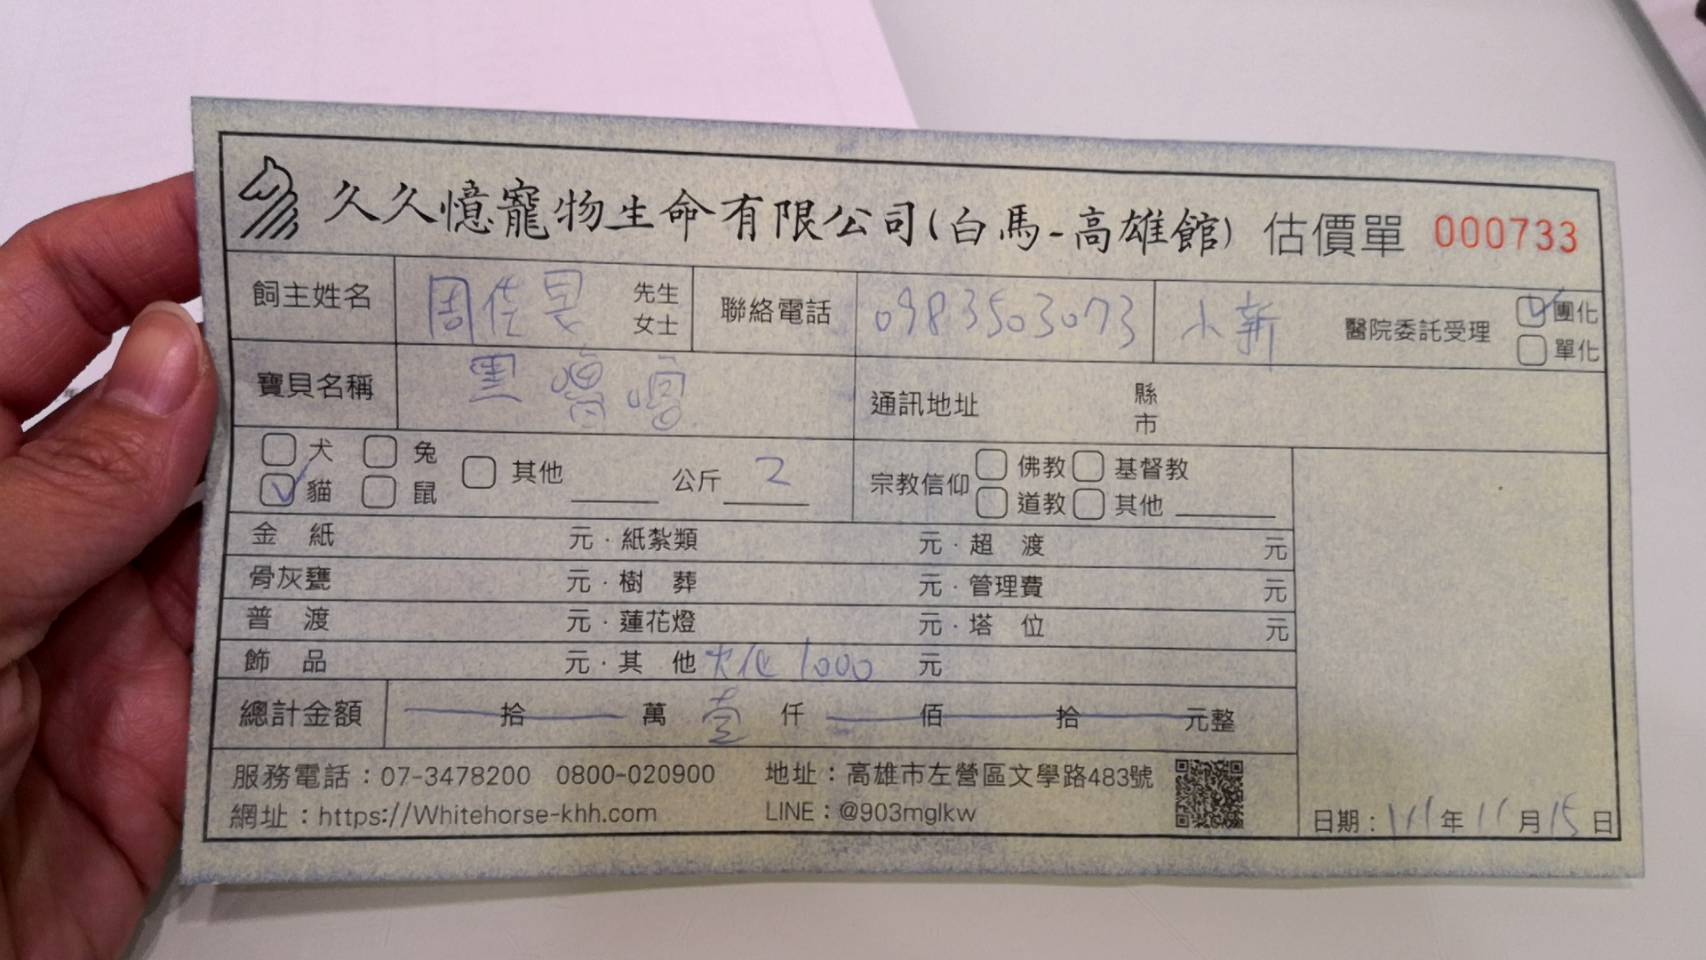 久久憶寵物生命有限公司(白馬-高雄館) 估價單 000733
飼主姓名 周佳旻 先生 女士 聯絡電話 0983503073 小新 醫院委託受理 團化 單化
寶貝名稱 黑嚕嚕 通訊地址 縣 市
犬 兔 其他 公斤 2 宗教信仰 佛教 基督教
貓 鼠 道教 其他
金紙 元·紙紮類 元·超渡 元
骨灰甕 元·樹葬 元·管理費 元
普渡 元·蓮花燈 元·塔位 元
飾品 元·其他 火化 1000 元
總計金額 拾 萬 壹 仟 佰 拾 元整
服務電話：07-3478200 0800-020900 地址：高雄市左營區文學路483號
網址：https://Whitehorse-khh.com LINE：@903mglkw 日期：111年11月15日